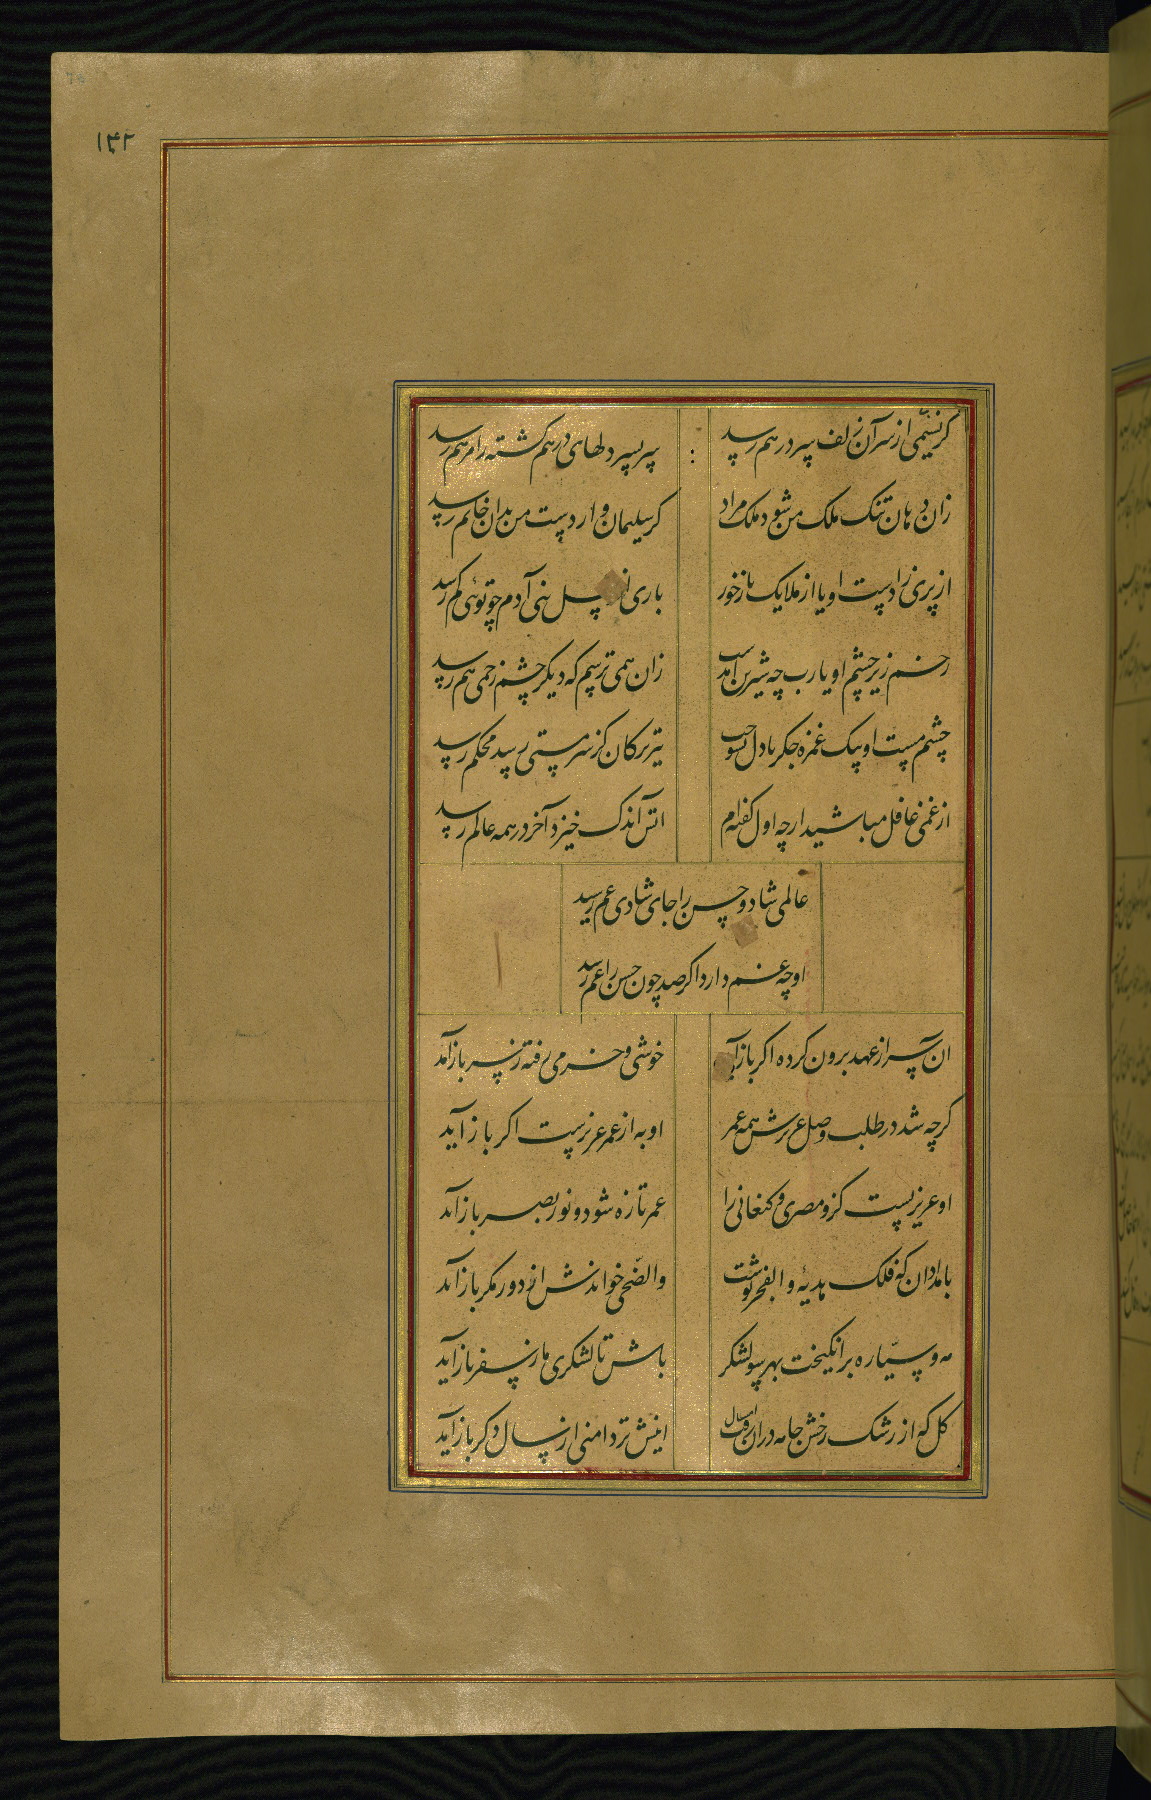 ۱۴۲
گر نسیمی از سر آن زلف سر در هم رسد
سر بسر دلهای در هم گشته را مرهم رسد
زان دهان تنک ملک من شود ملک مراد
گر سلیمان وار دست من بدان خاتم رسد
از پری زادست او یا از ملایک یا ز حور
باری از نسل بنی آدم چو توئی کم رسد
زخم زیر چشم او یارب چه شیرین آمدست
زان همی ترسم که دیگر چشم زخمی هم رسد
چشم مست او بیک غمزه جگر با دل بسوخت
تیر ترکان کز سر مستی رسد محکم رسد
از غمش غافل مباشید ار چه اول گفته‌ام
اتش اندک خیزد آخر در همه عالم رسد
عالمی شاد و حسن را جای شادی غم رسید
او چه غم دارد اگر صد چون حسن را غم رسد
ان پسر از عهد برون کرده اگر باز آید
خوشی و خرمی رفته ز سر باز آید
گرچه شد در طلب وصل عزیزش همه عمر
او به از عمر عزیزست اگر باز آید
او عزیزیست کزو مصری و کنعانی را
عمر تازه شود و نور بصر باز آید
بامدادان که فلک هدیه والفجر نوشت
والضحی خواندنش از دور مگر باز آید
مه و سیاره برانگیخت بهر سو لشکر
باش تا لشکری ما ز سفر باز آید
گل که از رشک رخش جامه دران رفت امسال
اینش تردامنی ار سال دگر باز آید